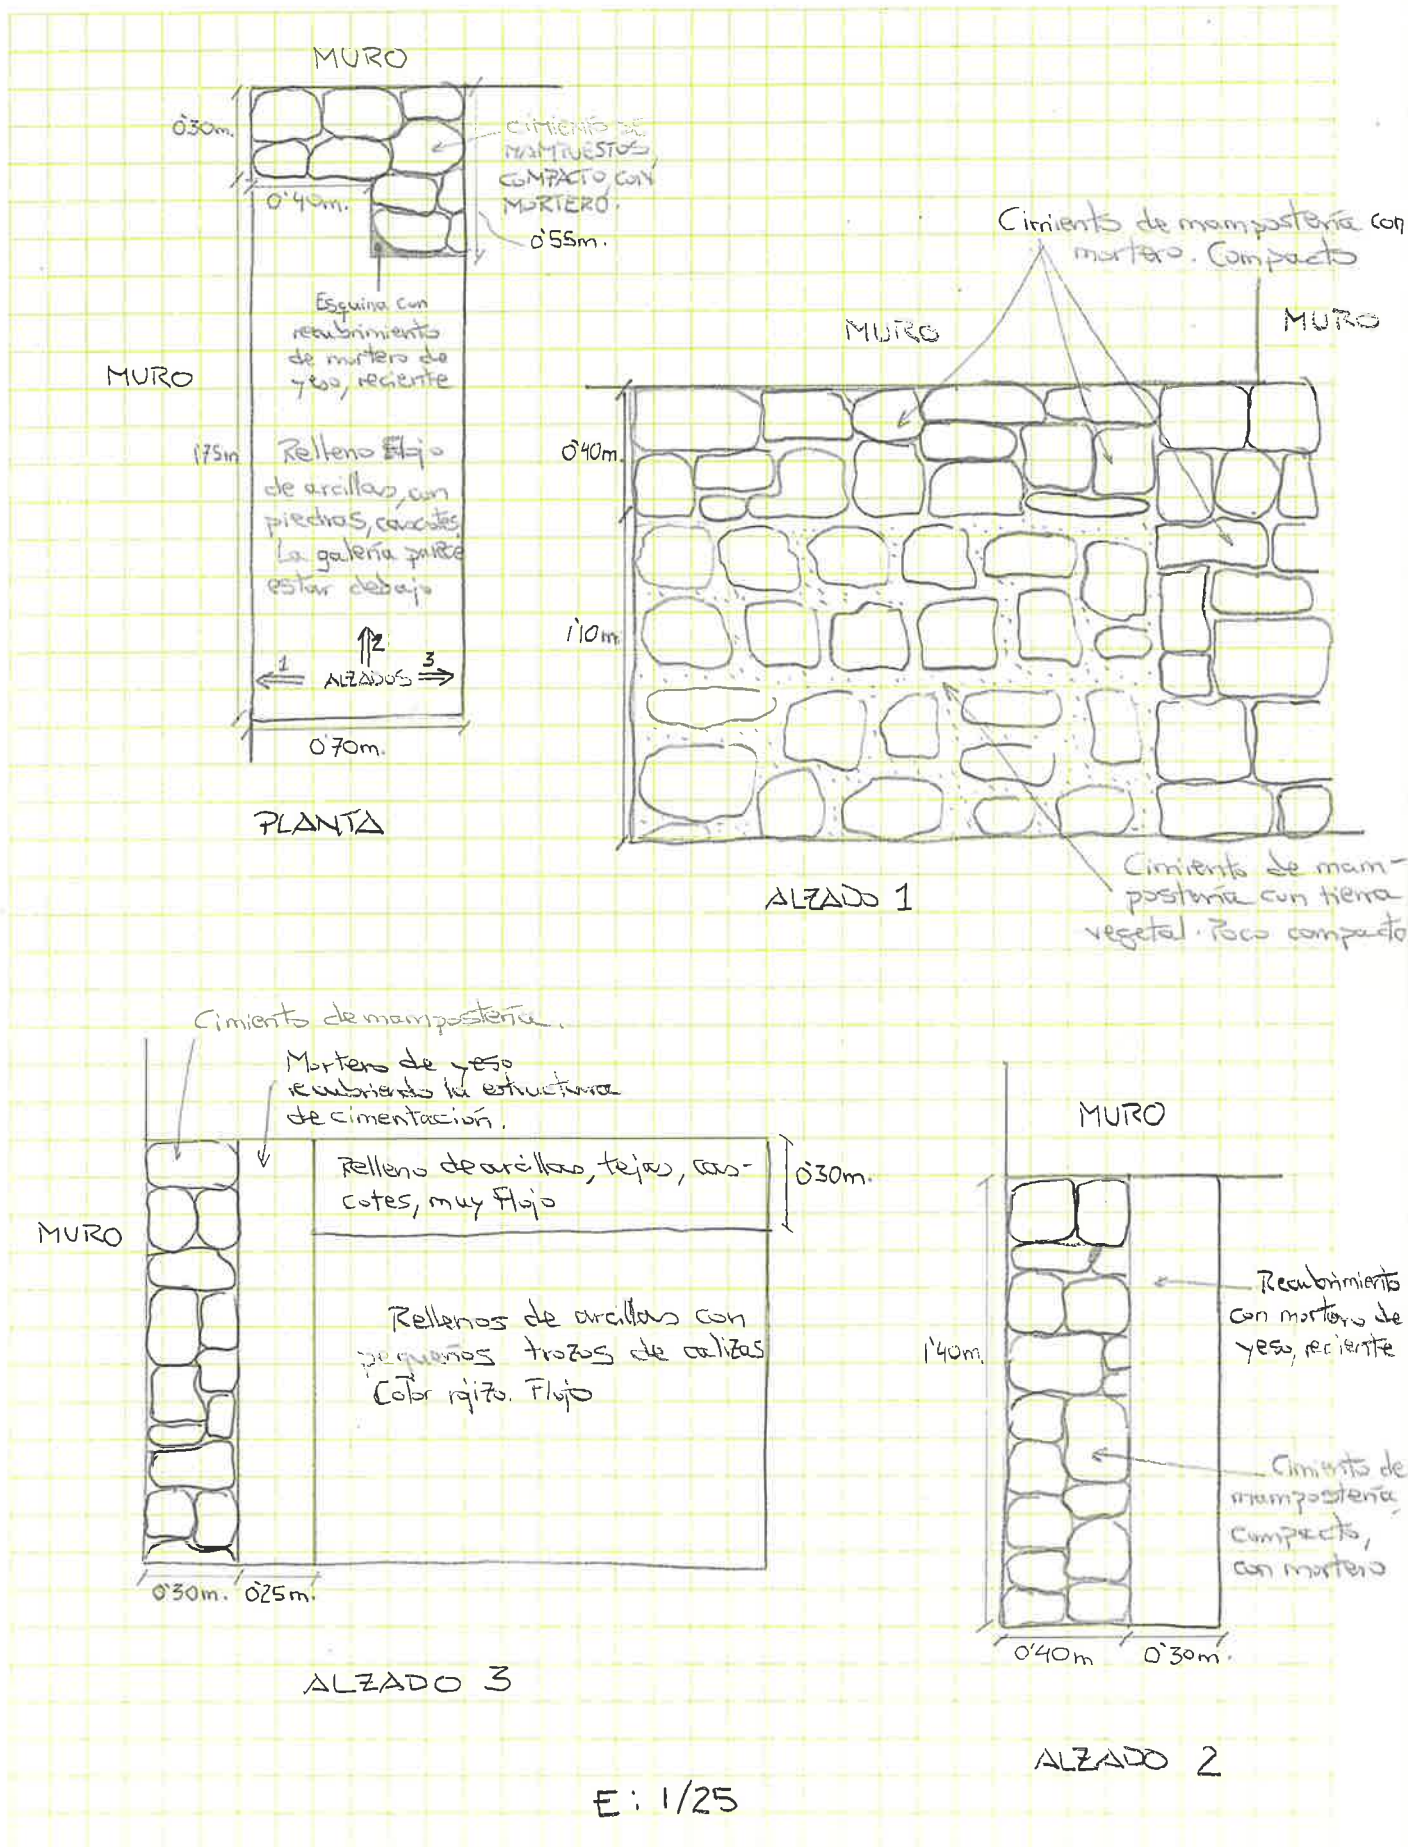 MURO
0'30m.
CIMIENTO DE
MAMPUESTOS,
COMPACTO, CON
MORTERO.
0'40m.
0'55m.
Esquina con
recubrimiento
de mortero de
yeso, reciente
MURO
1'75m
Relleno Flojo
de arcillas, con
piedras, cascotes.
La galería parece
estar debajo
2
1
3
ALZADOS
0'70m.
PLANTA
Cimiento de mampostería con
mortero. Compacto
MURO
MURO
0'40m.
1'10m.
ALZADO 1
Cimiento de mam-
postería con tierra
vegetal. Poco compacto
Cimiento de mampostería.
Mortero de yeso
recubriendo la estructura
de cimentación.
Relleno de arcillas, tejas, cas-
cotes, muy Flojo
0'30m.
MURO
Rellenos de arcillas con
pequeños trozos de calizas
Color rojizo. Flojo
0'30m.
0'25m.
ALZADO 3
MURO
Recubrimiento
con mortero de
yeso, reciente
1'40m.
Cimiento de
mampostería,
compacto,
con mortero
0'40m
0'30m.
ALZADO 2
E: 1/25